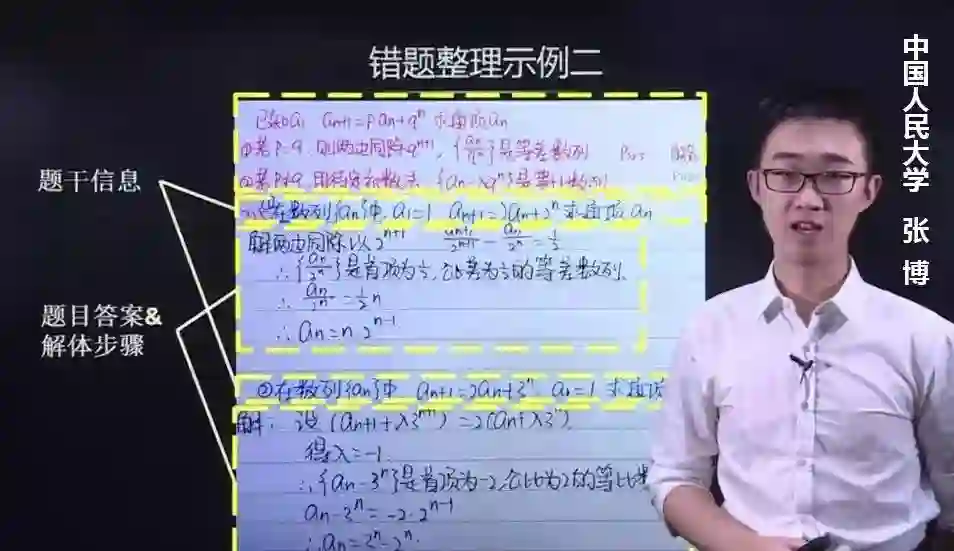 错题整理示例二
中国人民大学 张 博
题干信息
题目答案&
解体步骤
已知a₁ aₙ₊₁=paₙ+qⁿ 求通项aₙ
①若p=q,则两边同除qⁿ⁺¹,{aₙ/qⁿ}是等差数列
②若p≠q,即待定系数法 {aₙ-λqⁿ}是等比数列
在数列{aₙ}中,a₁=1 aₙ₊₁=2aₙ+2ⁿ 求通项 aₙ
解两边同除以2ⁿ⁺¹ aₙ₊₁/2ⁿ⁺¹ - aₙ/2ⁿ = 1/2
∴{aₙ/2ⁿ}是首项为½,公差为½的等差数列.
∴ aₙ/2ⁿ = ½n
∴ aₙ=n·2ⁿ⁻¹
②在数列{aₙ}中 aₙ₊₁=2aₙ+3ⁿ a₁=1 求通项
解: 设(aₙ₊₁+λ3ⁿ⁺¹)=2(aₙ+λ3ⁿ)
得λ=-1.
∴{aₙ-3ⁿ}是首项为-2,公比为2的等比
aₙ-3ⁿ=-2·2ⁿ⁻¹
∴aₙ=3ⁿ-2ⁿ.